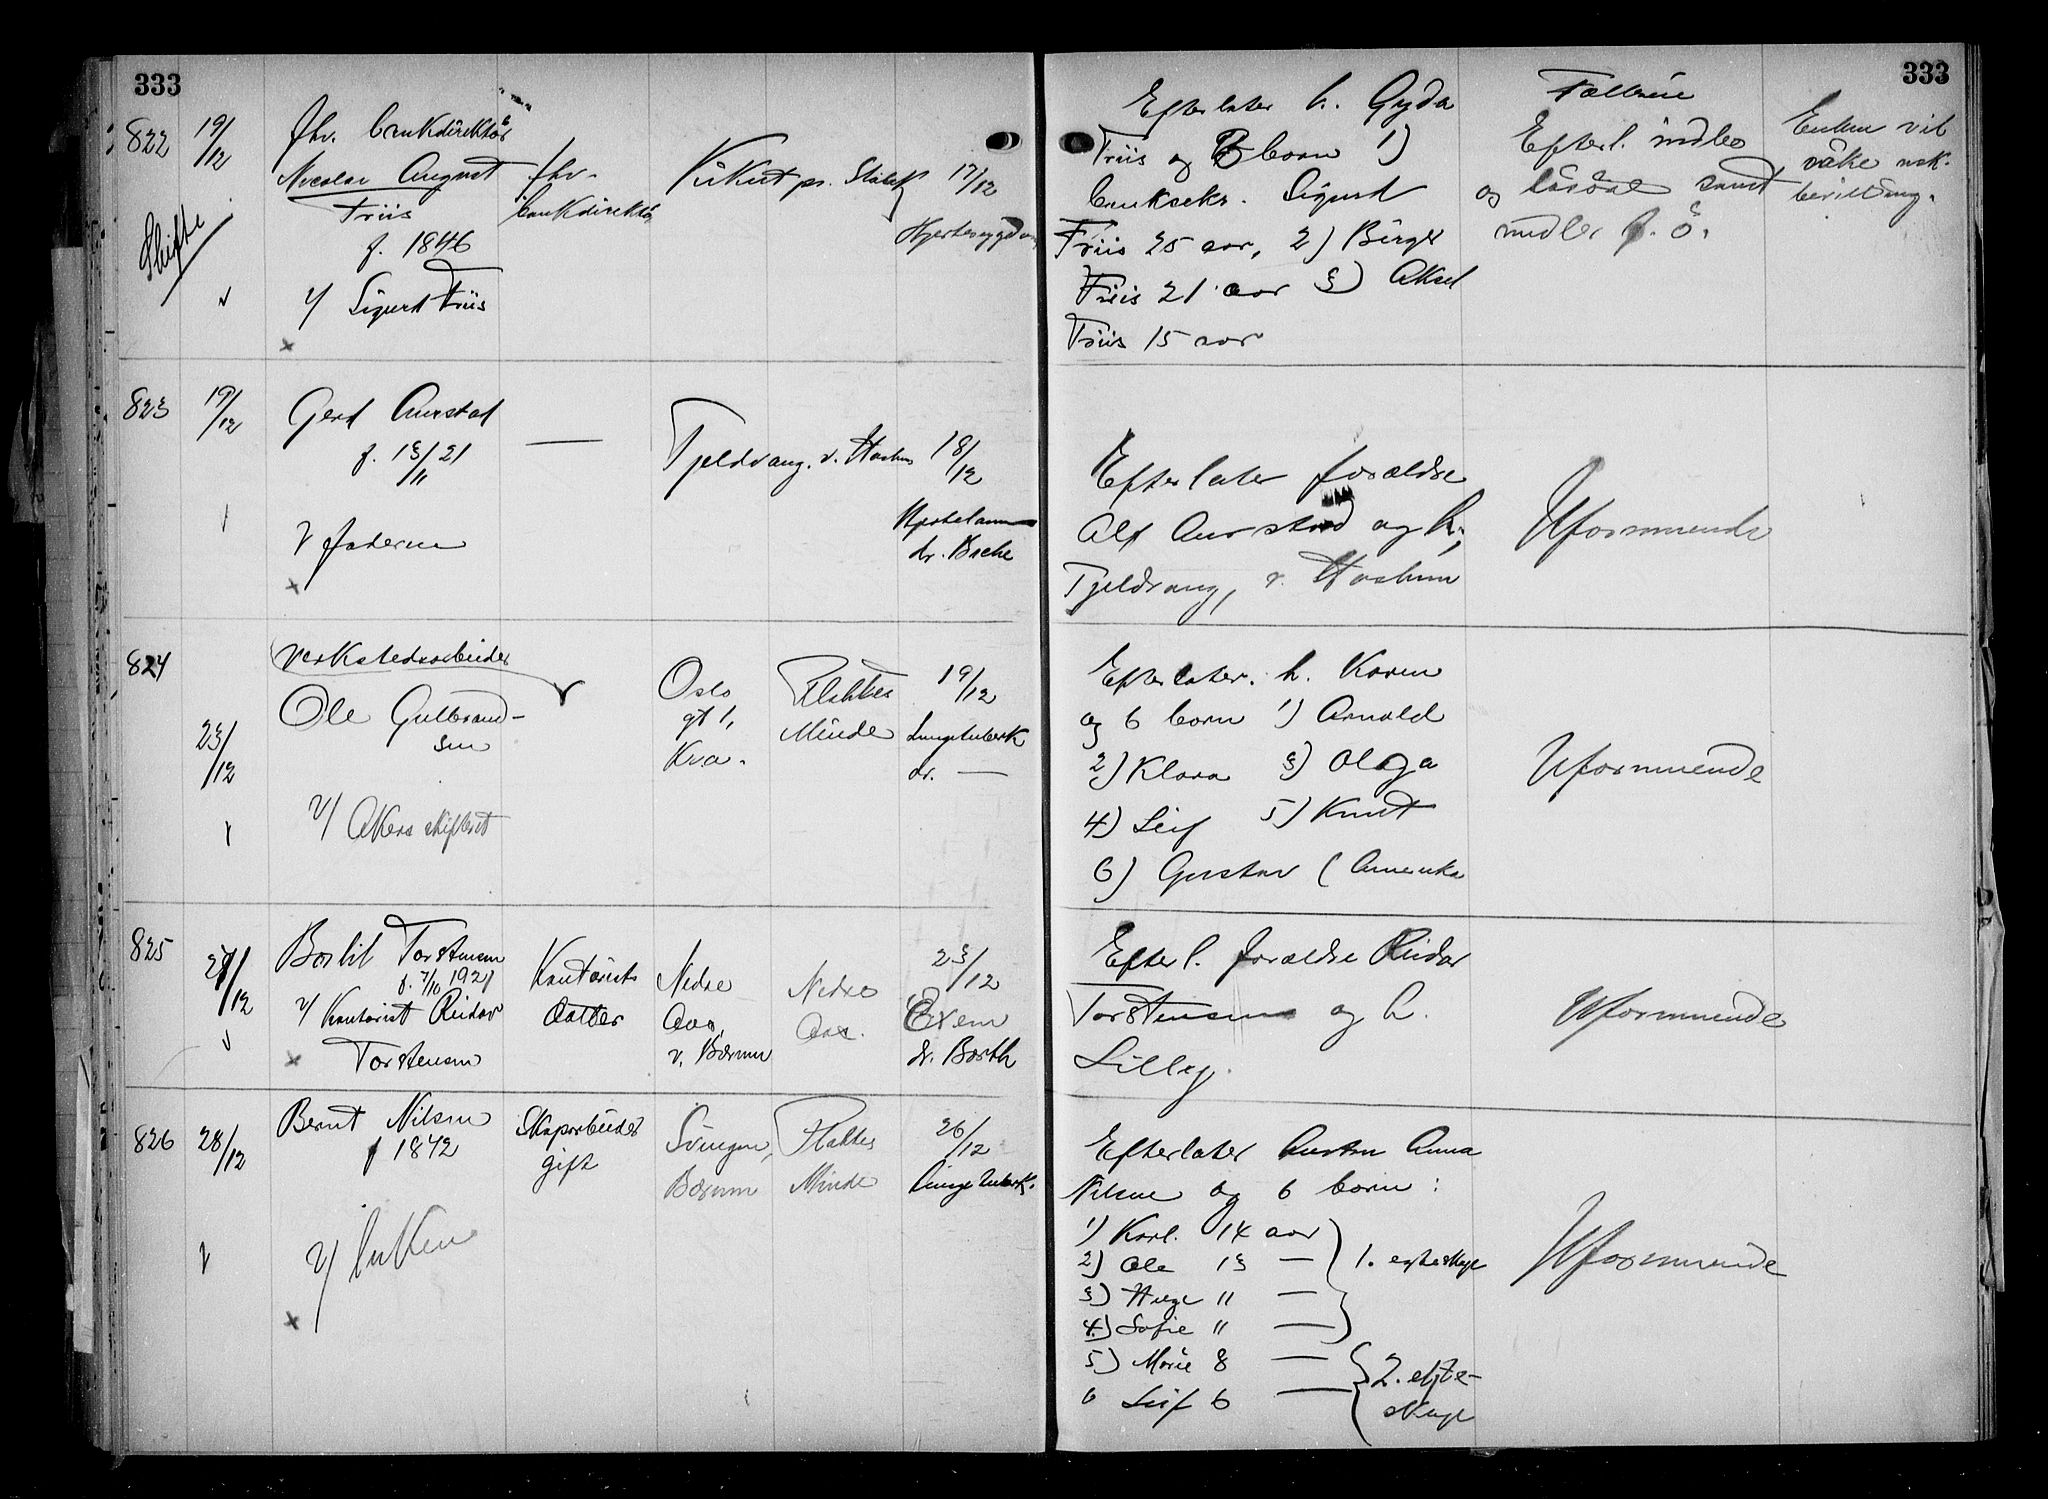 333
333
822
19/12
fhv. bankdirektør
Nicolai August
Friis
f. 1846
v/ Sigurd Friis
Skifte
fhv.
bankdirektør
Vikut pr. Stabæk
17/12
Hjertesygdom
Efterlater h. Gyda
Friis og 3 børn 1)
banksekr. Sigurd
Friis 25 aar, 2) Birger
Friis 21 aar 3) Aksel
Friis 15 aar
Fælleseie
Efterl. indbo
og løsøre samt
midler f. ö.
Enken vil
søke usk.
bevilling.
823
19/12
Gerd Aurstad
f. 13/11 21
v/ faderen
—
Fjeldvang, v. Haslum
18/12
Hjertelammelse
dr. Bache
Efterlater forældre
Alf Aurstad og h.,
Fjeldvang, v. Haslum
Uformuende
824
23/12
Verkstedsarbeider
Ole Gulbrand-
sen
v/ Akers skifteret
Oslo
gt 1,
Kra.
Flaktes
Minde
19/12
Lungetuberk
dr. —
Efterlater h. Karen
og 6 børn 1) Arnold
2) Klara 3) Olga
4) Leif 5) Knut
6) Gustav (Amerika
Uformuende
825
27/12
Borhil Torstensen
f. 7/10 1921
v/ Kontorist Reidar
Torstensen
Kontorists
datter
Nedre
Aas,
v. Bærum
Nedre
Aas.
23/12
Exem
dr. Barth
Efterl. forældre Reidar
Torstensen og h.
Lilly.
Uformuende
826
28/12
Bernt Nilsen
f 1872
v/ enken
Skogsarbeider
gift
Svingen,
Bærum
Flaktes
Minde
26/12
Lungetuberk.
Efterlater hustru Anna
Nilsen og 6 børn:
1) Karl. 14 aar
2) Ole 13 — 1. egteskap
3) Helge 11 —
4) Sofie 11 —
5) Marie 8 —
6 Leif 6 — 2. egte-
skap